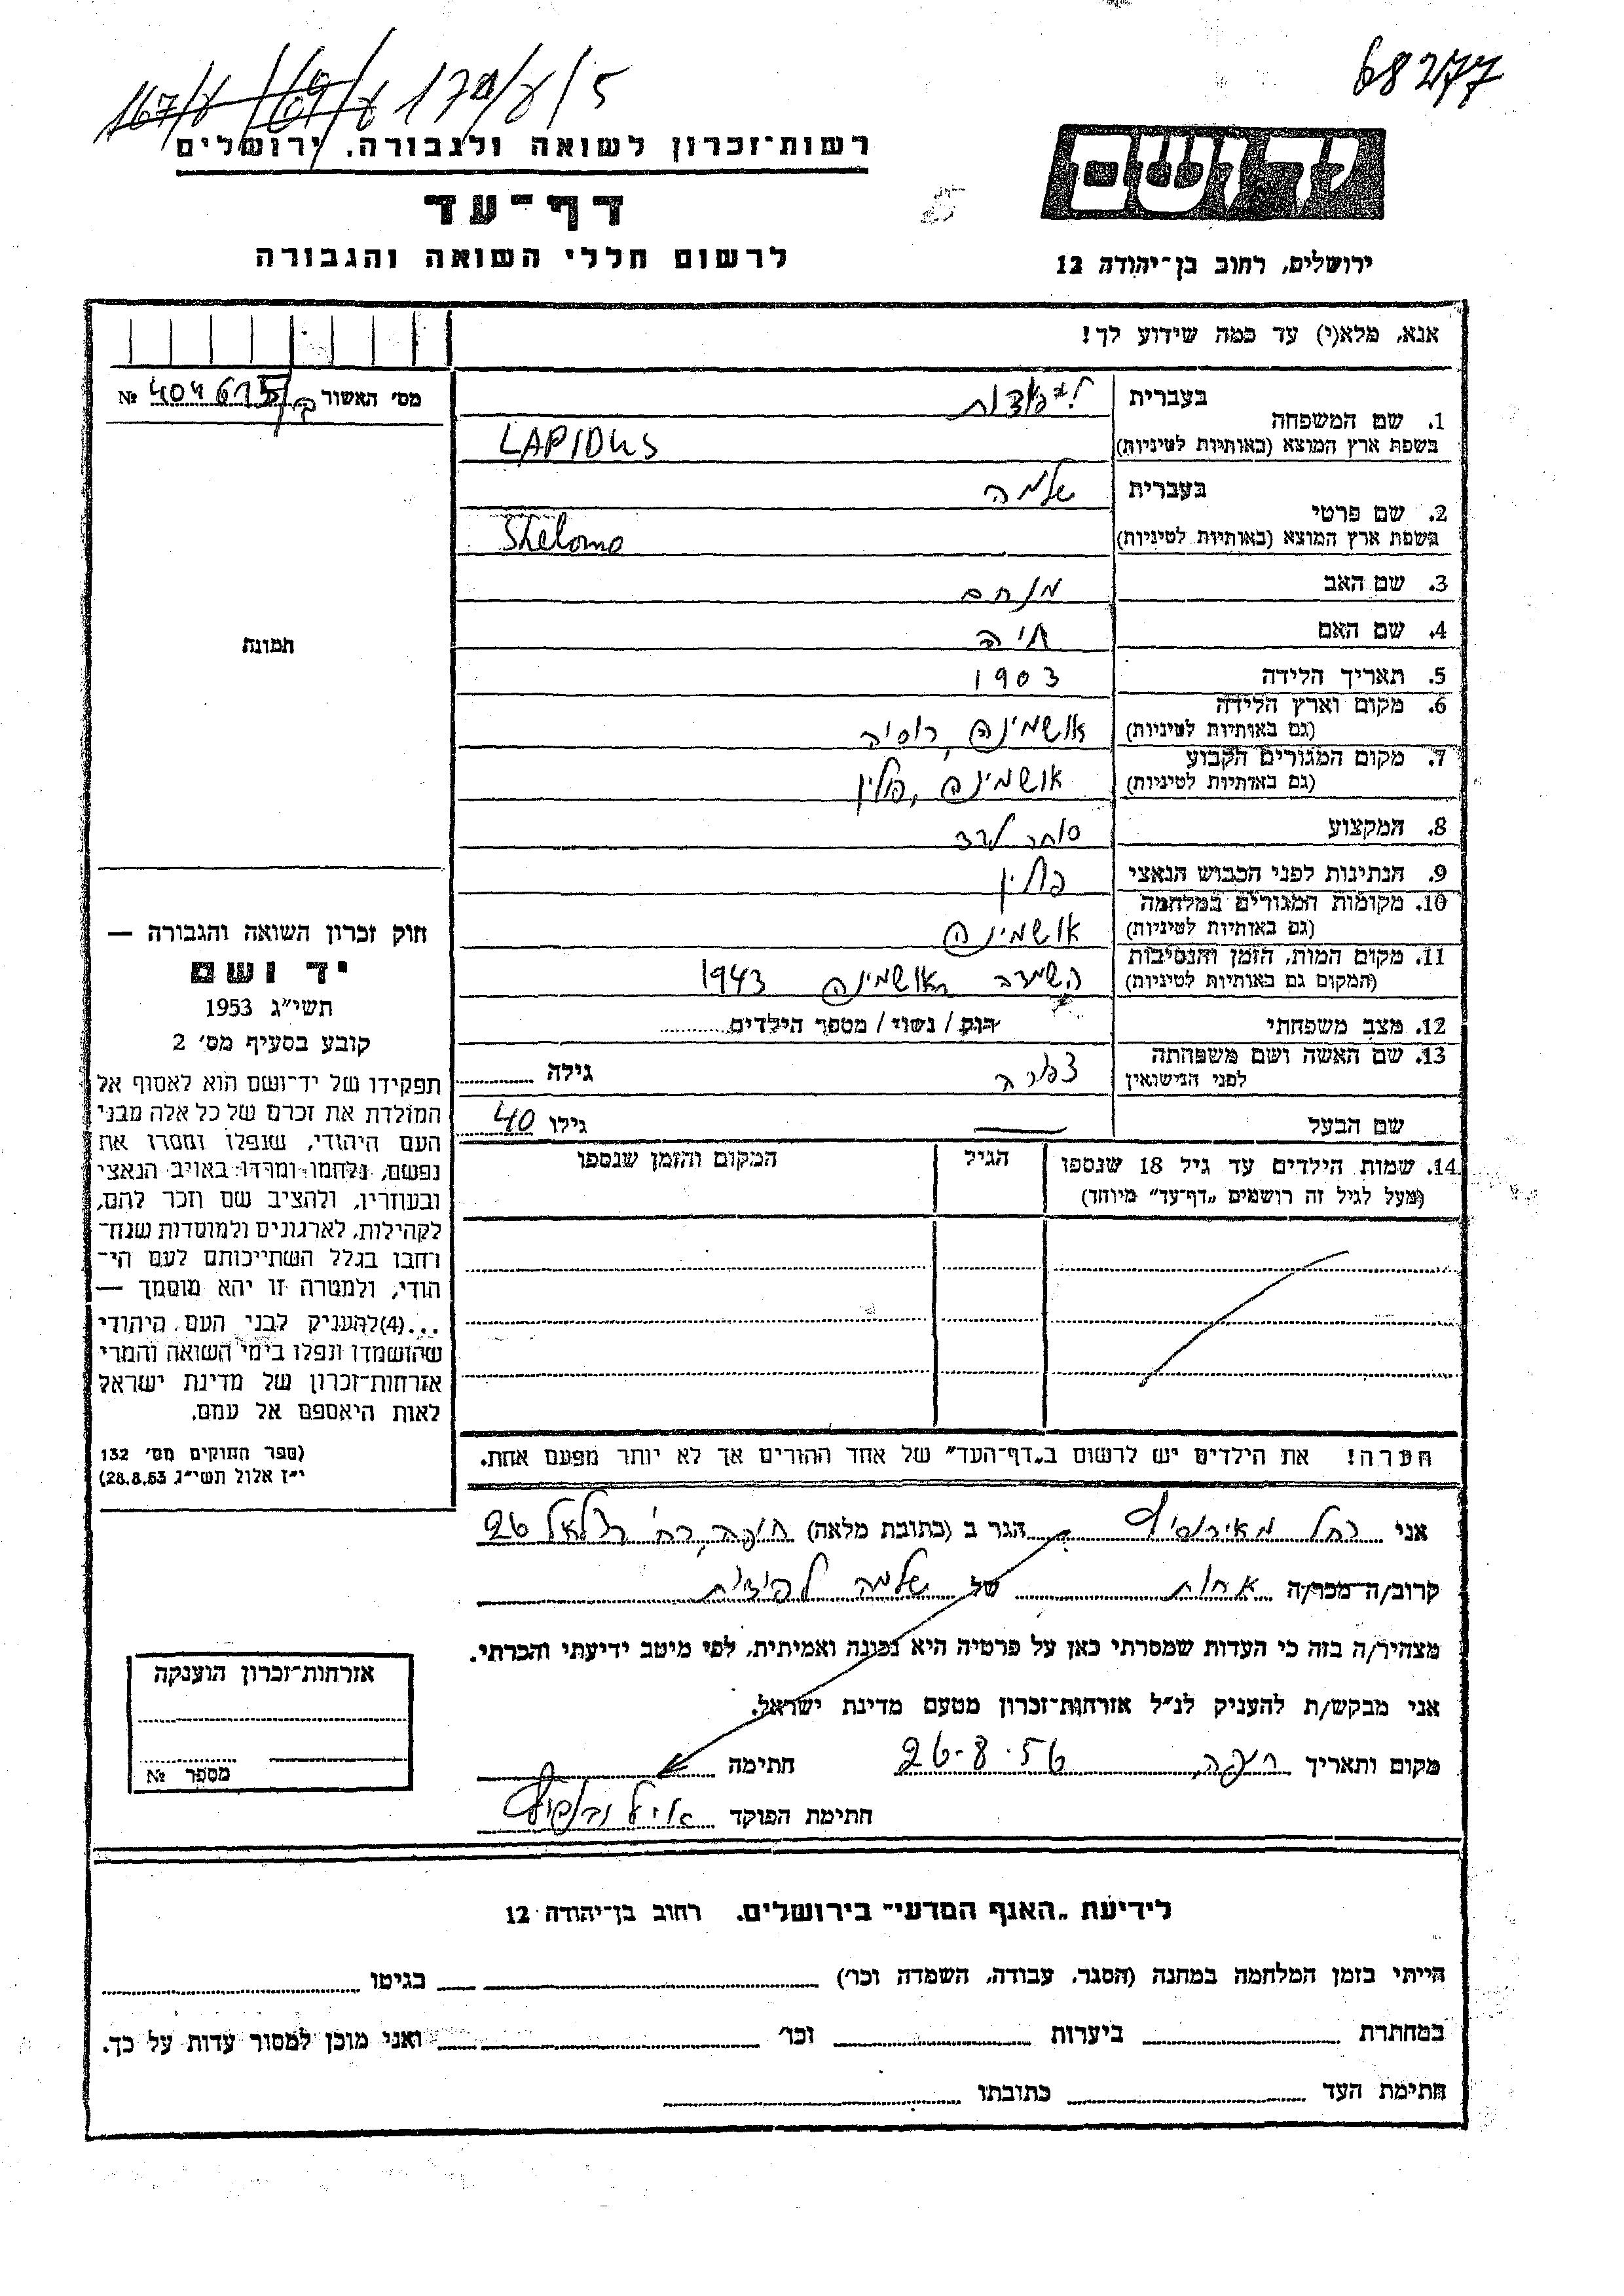 68277
167/ע 169/ע 170/ע/5
רשות־זכרון לשואה ולגבורה, ירושלים
יד ושם
דף־עד
לרשום חללי השואה והגבורה
ירושלים, רחוב בן־יהודה 12
אנא, מלא(י) עד כמה שידוע לך!
מס׳ האשור № 404615
1. שם המשפחה
בעברית
בשפת ארץ המוצא (באותיות לטיניות) LAPIDUS
2. שם פרטי
בעברית שלמה
בשפת ארץ המוצא (באותיות לטיניות) Shelomo
3. שם האב מנחם
4. שם האם חיה
5. תאריך הלידה 1903
6. מקום וארץ הלידה
(גם באותיות לטיניות) אושמינה, רוסיה
7. מקום המגורים הקבוע
(גם באותיות לטיניות) אושמינה, פולין
8. המקצוע סוחר
9. הנתינות לפני הכבוש הנאצי פולין
10. מקומות המגורים במלחמה
(גם באותיות לטיניות) אושמינה
11. מקום המות, הזמן והנסיבות
(המקום גם באותיות לטיניות) באושמינה 1943
12. מצב משפחתי רווק / נשוי / מספר הילדים
13. שם האשה ושם משפחתה
לפני הנישואין צפורה גילה
שם הבעל — גילו 40
14. שמות הילדים עד גיל 18 שנספו
(מעל לגיל זה רושמים „דף־עד” מיוחד)
הגיל
המקום והזמן שנספו
הערה! את הילדים יש לרשום ב„דף־העד” של אחד ההורים אך לא יותר מפעם אחת.
תמונה
חוק זכרון השואה והגבורה —
יד ושם
תשי״ג 1953
קובע בסעיף מס׳ 2
תפקידו של יד־ושם הוא לאסוף אל
המולדת את זכרם של כל אלה מבני
העם היהודי, שנפלו ומסרו את
נפשם, נלחמו ומרדו באויב הנאצי
ובעוזריו, ולהציב שם וזכר להם,
לקהילות, לארגונים ולמוסדות שנח־
רבו בגלל השתייכותם לעם הי־
הודי, ולמטרה זו יהא מוסמך —
...(4)להעניק לבני העם היהודי
שהושמדו ונפלו בימי השואה והמרי
אזרחות־זכרון של מדינת ישראל
לאות היאספם אל עמם.
(ספר החוקים מס׳ 132
י״ז אלול תשי״ג 28.8.53)
אני רחל הגר ב (כתובת מלאה) חיפה, רח׳ בצלאל 26
קרוב/ה־מכר/ה אחות של שלמה לפידות
מצהיר/ה בזה כי העדות שמסרתי כאן על פרטיה היא נכונה ואמיתית, לפי מיטב ידיעתי והכרתי.
אני מבקש/ת להעניק לנ״ל אזרחות־זכרון מטעם מדינת ישראל.
מקום ותאריך חיפה, 26.8.56 חתימה
חתימת הפוקד
אזרחות־זכרון הוענקה
מספר №
לידיעת „האגף המדעי” בירושלים, רחוב בן־יהודה 12
הייתי בזמן המלחמה במחנה (הסגר, עבודה, השמדה וכו׳) בגיטו
במחתרת ביערות וכו׳ ואני מוכן למסור עדות על כך.
חתימת העד כתובתו